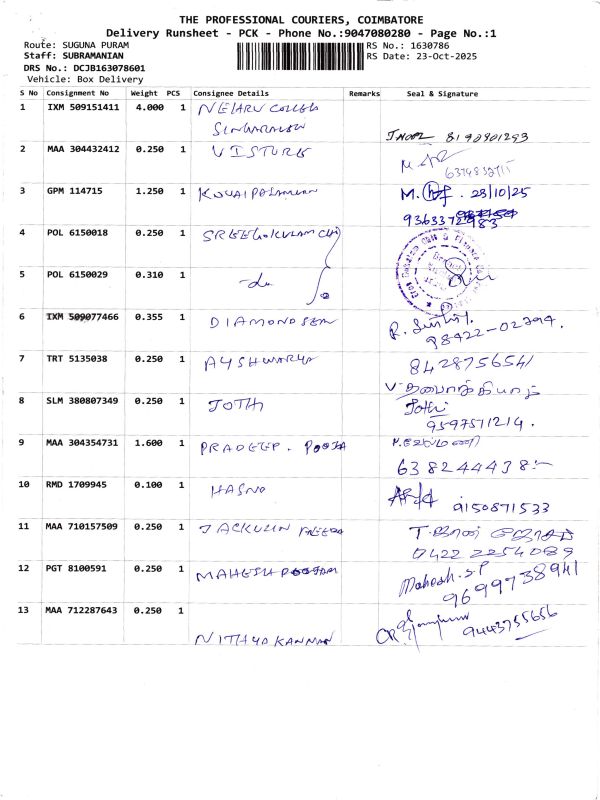 THE PROFESSIONAL COURIERS, COIMBATORE
Delivery Runsheet - PCK - Phone No.:9047080280 - Page No.:1
Route: SUGUNA PURAM
RS No.: 1630786
Staff: SUBRAMANIAN
RS Date: 23-Oct-2025
DRS No.: DCJB163078601
Vehicle: Box Delivery
S No Consignment No Weight PCS Consignee Details Remarks Seal & Signature
1 IXM 509151411 4.000 1 NEHRU COLLEGE
8190901293
2 MAA 304432412 0.250 1
3 GPM 114715 1.250 1 M. 23/10/25
4 POL 6150018 0.250 1 SREEGOKULAM CHI
5 POL 6150029 0.310 1 -do
6 IXM 509077466 0.355 1 DIAMOND SEA
98422-02794.
7 TRT 5135038 0.250 1 AYSHWARYA 8428756541
8 SLM 380807349 0.250 1 JOTHI Jothi
9597571214.
9 MAA 304354731 1.600 1 PRADEEP. POOJA
638244438
10 RMD 1709945 0.100 1 HASNO 9150871533
11 MAA 710157509 0.250 1 JACKULIN
0422 2254089
12 PGT 8100591 0.250 1 MAHESH POOJAM Mahesh.S.P
9699738941
13 MAA 712287643 0.250 1 NITHYA KANNAN 9443755656